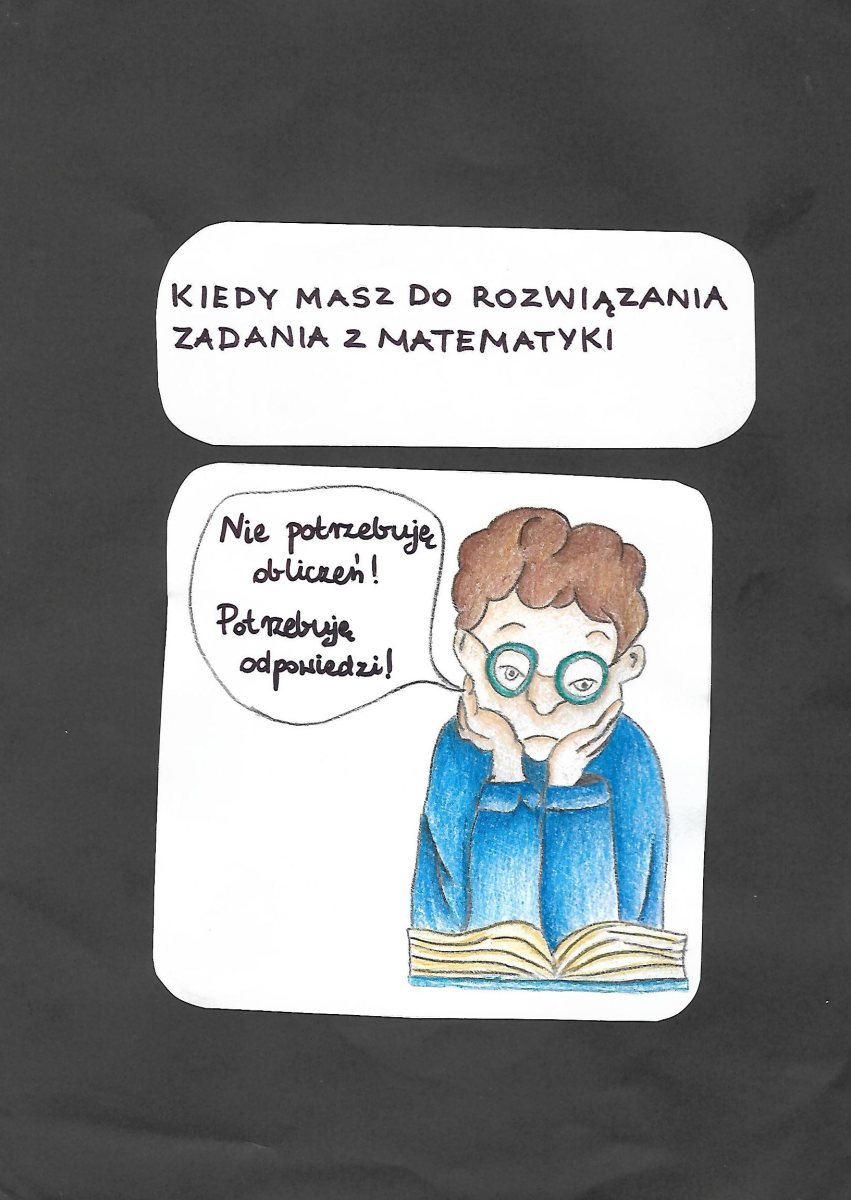 KIEDY MASZ DO ROZWIĄZANIA
ZADANIA Z MATEMATYKI
Nie potrzebuję
obliczeń!
Potrzebuję
odpowiedzi!